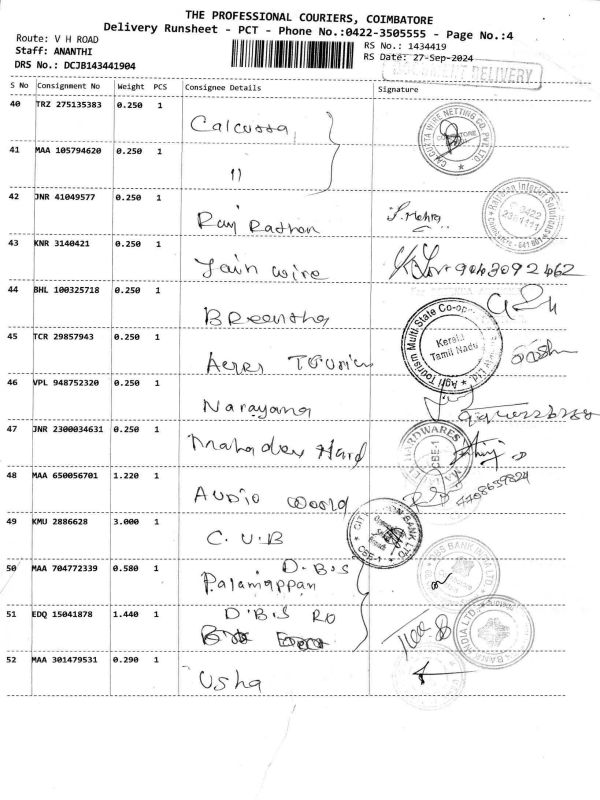 THE PROFESSIONAL COURIERS, COIMBATORE
Delivery Runsheet - PCT - Phone No.:0422-3505555 - Page No.:4
Route: V H ROAD
RS No.: 1434419
Staff: ANANTHI
RS Date: 27-Sep-2024
DRS No.: DCJB143441904
DELIVERY
S No Consignment No Weight PCS Consignee Details Signature
40 TRZ 275135383 0.250 1
Calcutta
CALCUTTA WIRE NETTING CO. PVT. LTD.
41 MAA 105794620 0.250 1
11
42 JNR 41049577 0.250 1
Raj Rathan
43 KNR 3140421 0.250 1
Jain wire
9043092462
44 BHL 100325718 0.250 1
Breentha
45 TCR 29857943 0.250 1
Agri Tourism Multi State Co-op
Kerala
Tamil Nadu
46 VPL 948752320 0.250 1
Narayana
47 JNR 2300034631 0.250 1
Mahadev Hard
HARDWARES
CBE-1
48 MAA 650056701 1.220 1
Audio World
49 KMU 2886628 3.000 1
C.U.B
50 MAA 704772339 0.580 1
D.B.S
Palaniappan
DBS BANK INDIA LTD
51 EDQ 15041878 1.440 1
D.B.S RO
BANK INDIA LTD
52 MAA 301479531 0.290 1
Usha